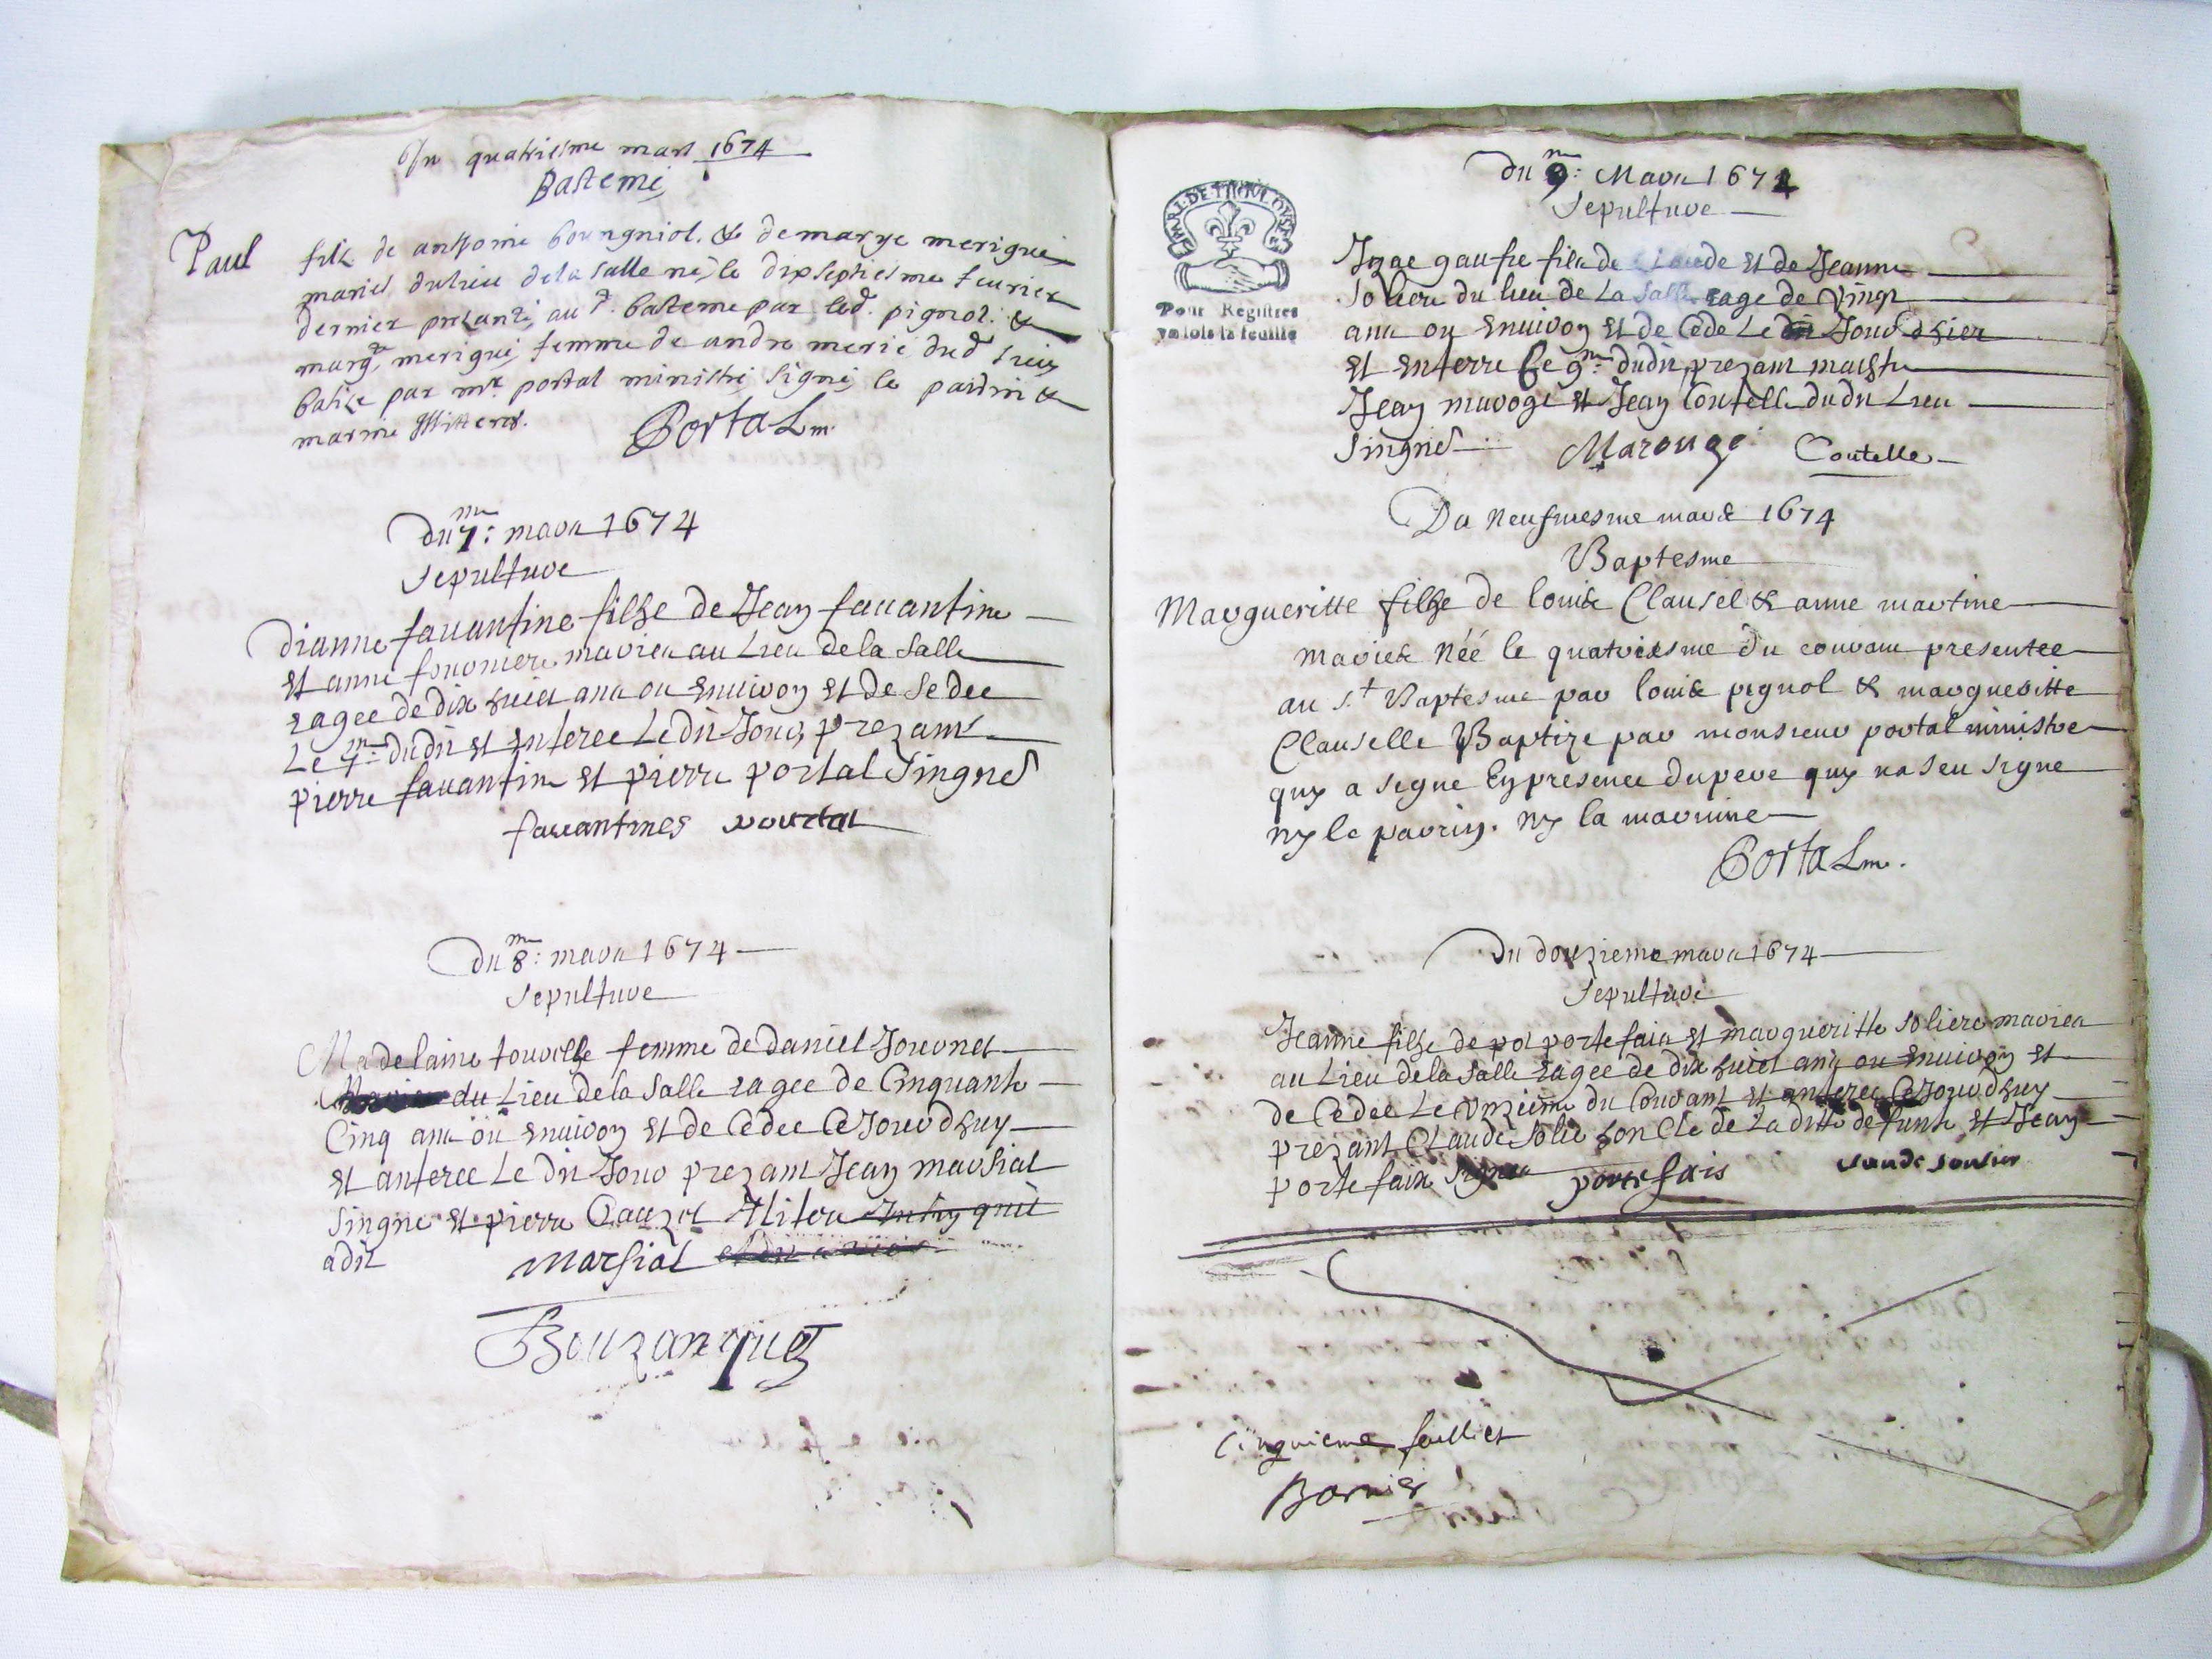 Du quatriesme mars 1674
Bateme
Paul fils de anthoine bourgniol & de marye merigue
mariés du lieu de la salle né le dixseptiesme feurier
dernier presanté au st. bateme par led. pignol &
margte merigue femme de andre merié dud lieu
batize par mr. portal ministre signé le parrin &
marine
Portal m.
Du 7me: mars 1674
Sepulture
Dianne fauantine filhe de Jean fauantine
et anne maries au Lieu de la Salle
eagee de dix huict ans ou enuiron et de Sedee
Le 7me: dudit et enteree Ledit Jour prezans
pierre fauantine et pierre portal Singnes
fauantines pourtal
Du 8me: mars 1674
Sepulture
Madelaine tourelhe femme de Daniel Jouvnet
du Lieu de la Salle eagee de Cinquante
Cinq ans ou enuiron et de Cedee Ce Jourdhuy
et anteree Le dit Jour prezant Jean marsial
Singne et pierre Cauzet
adit
Marsial
Bouzanquet
PourRegistres
Du 9me: Mars 1674
Sepulture
Izac gaufre fils de et de Jeanne
Soliere du lieu de La Salle eage de Vingt
ans ou enuiron et de Cede Le Jour dhier
et enterre Ce 9me: dudit prezant
Jean maroge et Jean Coutelle dudit Lieu
Singnes Marouge Coutelle
Du Neufuiesme mars 1674
Baptesme
Margueritte filhe de louis Clausel & anne martine
maries Née le quatriesme du courant presentee
au st. Baptesme par louis pignol & margueritte
Clauselle Baptize par monsieur portal ministre
quy a signe En presence du pere quy na seu signe
ny le parrin. ny la marrine
Portal m.
Du douzieme mars 1674
Sepulture
Jeanne filhe de pol portefaix et margueritte Soliere maries
au Lieu de la Salle eagee de dix huict ans ou enuiron et
de Cedee Le Unzieme du Courant et anteree Ce Jourdhuy
prezant Claude Solie honcle de La ditte defunte et Jean
portefaix Signes portefais
Cinquieme feulliet
Bornier